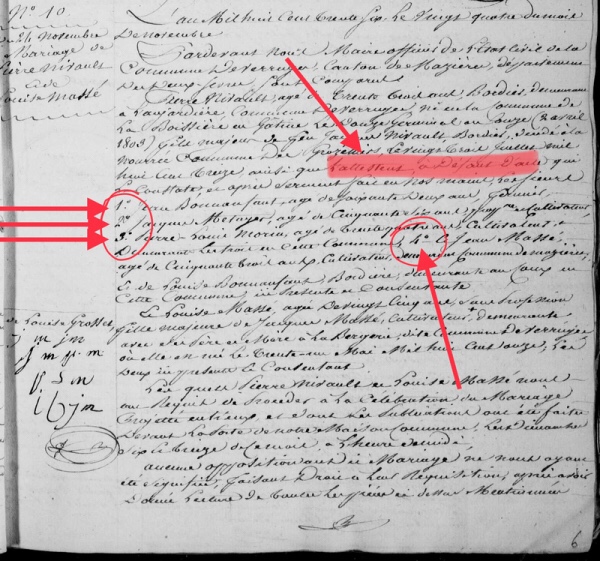 N.° 10
24 Novembre
Mariage de
Pierre Nirault
et de
Louise Massé
L'an Mil huit Cent Trente six Le Vingt quatre du mois
De Novembre.
Pardevant Nous Maire officier de l'Etat Civil de la
Commune De Verruyes, Canton de Mazières, département
Des Deux-Sevres, sont Comparus
Pierre Nirault, agé de Trente trois ans Bordier, demeurant
à Commune De Verruyes, né en la Commune de
La Boissière en Gâtine Le Douze Germinal an Onze (2 avril
1803) fils majeur de feu Jacques Nirault, Bordier, décédé à la
Commune de Le vingt trois Juillet mil
huit Cent treize, ainsi que l'attestent, à Défaut D'acte qui
Le Constate, et après serment fait en nos mains, Les sieurs
1.° Jean Bonnanfant, agé de soixante Deux ans,
2.° Jacques Métayer, agé de Cinquante six ans, Cultivateur,
3.° Pierre-Louis Morin, agé de Trente quatre ans, Cultivateur,
Demeurant Les trois en Cette Commune, 4.° et Jean Massé,
agé de Cinquante trois ans Cultivateur, Commune de mazières,
Et de Louise Bonnanfant, Bordière, demeurante au
Cette Commune, ici Présente et Consentante
Et Louise Massé, agée De vingt Cinq ans, sans Profession
fille majeure de Jacques Massé, Cultivateur, demeurante
avec ses Père et Mère à La Bergerie, dite Commune de Verruyes
où elle est née Le Trente-un Mai Mil huit Cent onze, Les
Deux ici présents et Consentant
Les quels Pierre Nirault et Louise Massé nous
ont Requit de Proceder à La Célébration du Mariage
Projetté entr'eux, et dont Les Publications ont été faites
Devant La Porte de notre Maison Commune, Les Dimanches
Six et Treize de Ce mois, à L'heure de midi.
aucune opposition audit Mariage ne nous ayant
été signifiée, faisant Droit à Leur Requisition, après avoir
Donné Lecture de toutes Les pièces ci dessus Mentionnées
de Louise Grosset
m j m
J m p. m
6